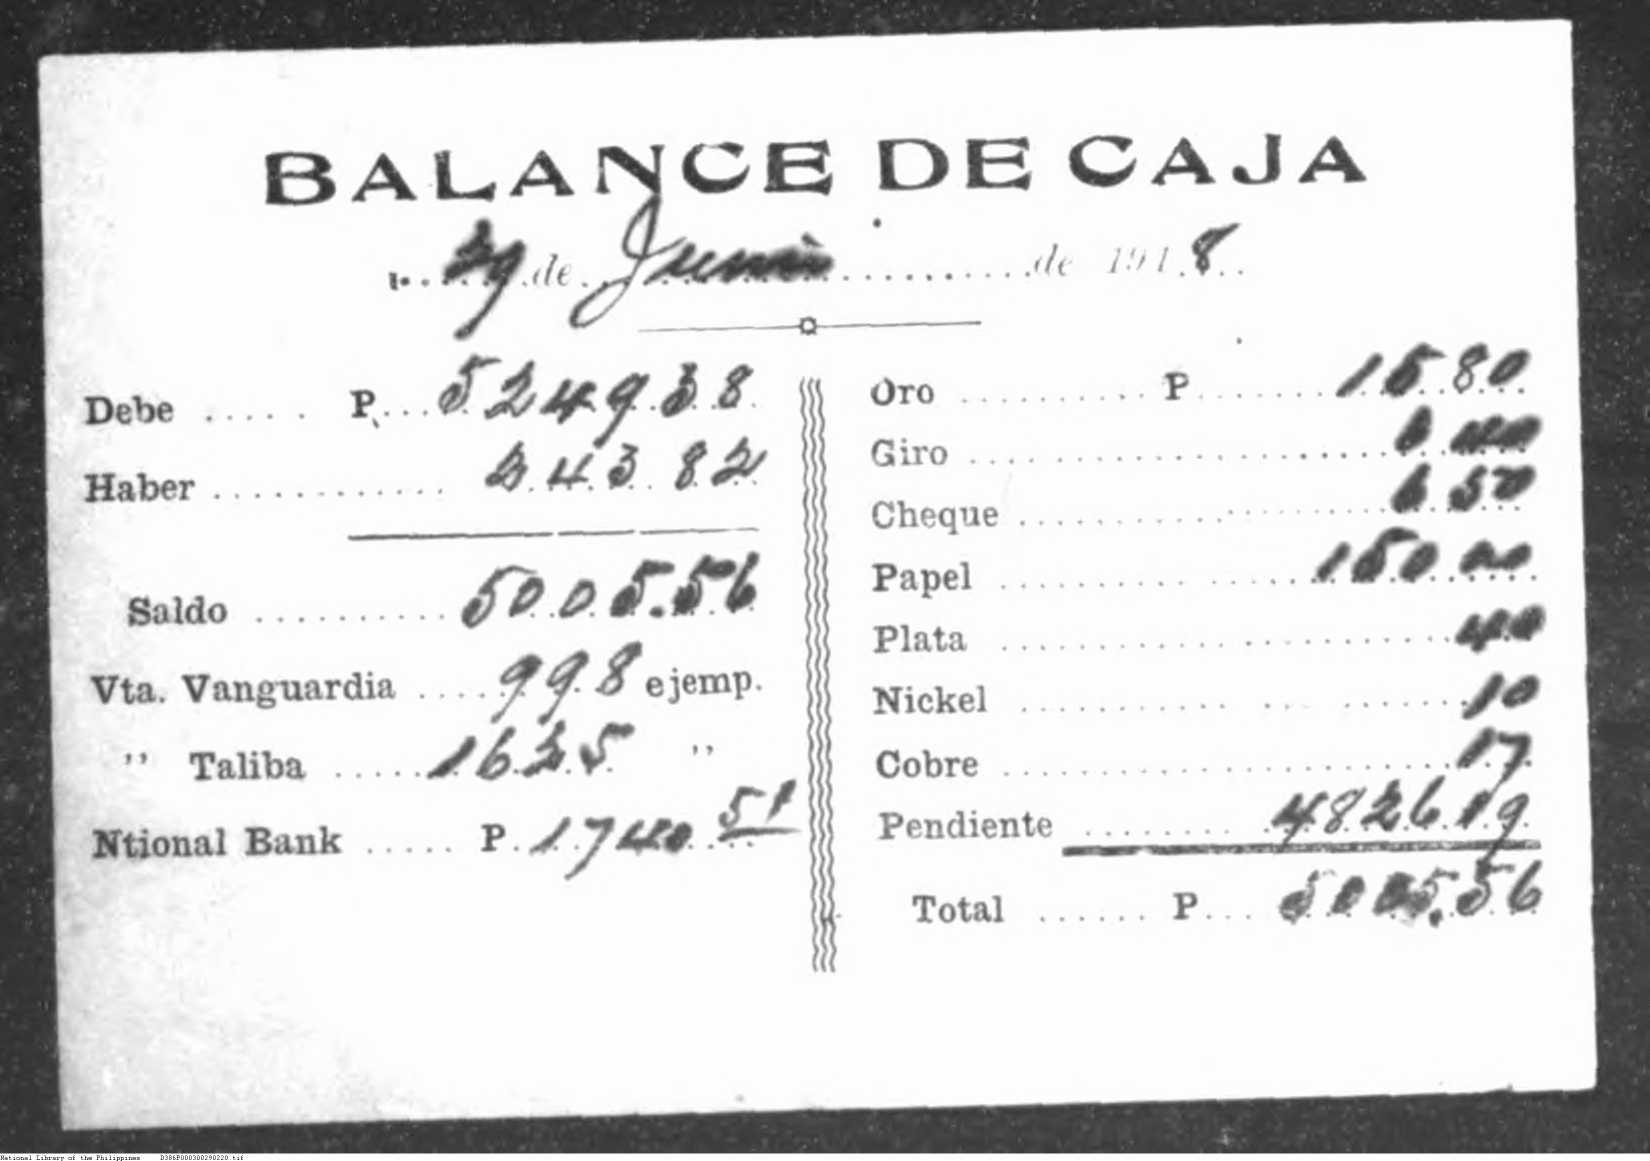 BALANCE DE CAJA
29 de Junio de 1918
Debe P. 5249.38
Haber 243.82
Saldo 5005.56
Vta. Vanguardia 998 ejemp.
" Taliba 1625 "
Ntional Bank P. 1740.51
Oro P 15.80
Giro 6.40
Cheque 6.50
Papel 150.00
Plata 40
Nickel 10
Cobre 17
Pendiente 4826.19
Total P 5005.56
National Library of the Philippines D386P000300290220.tif